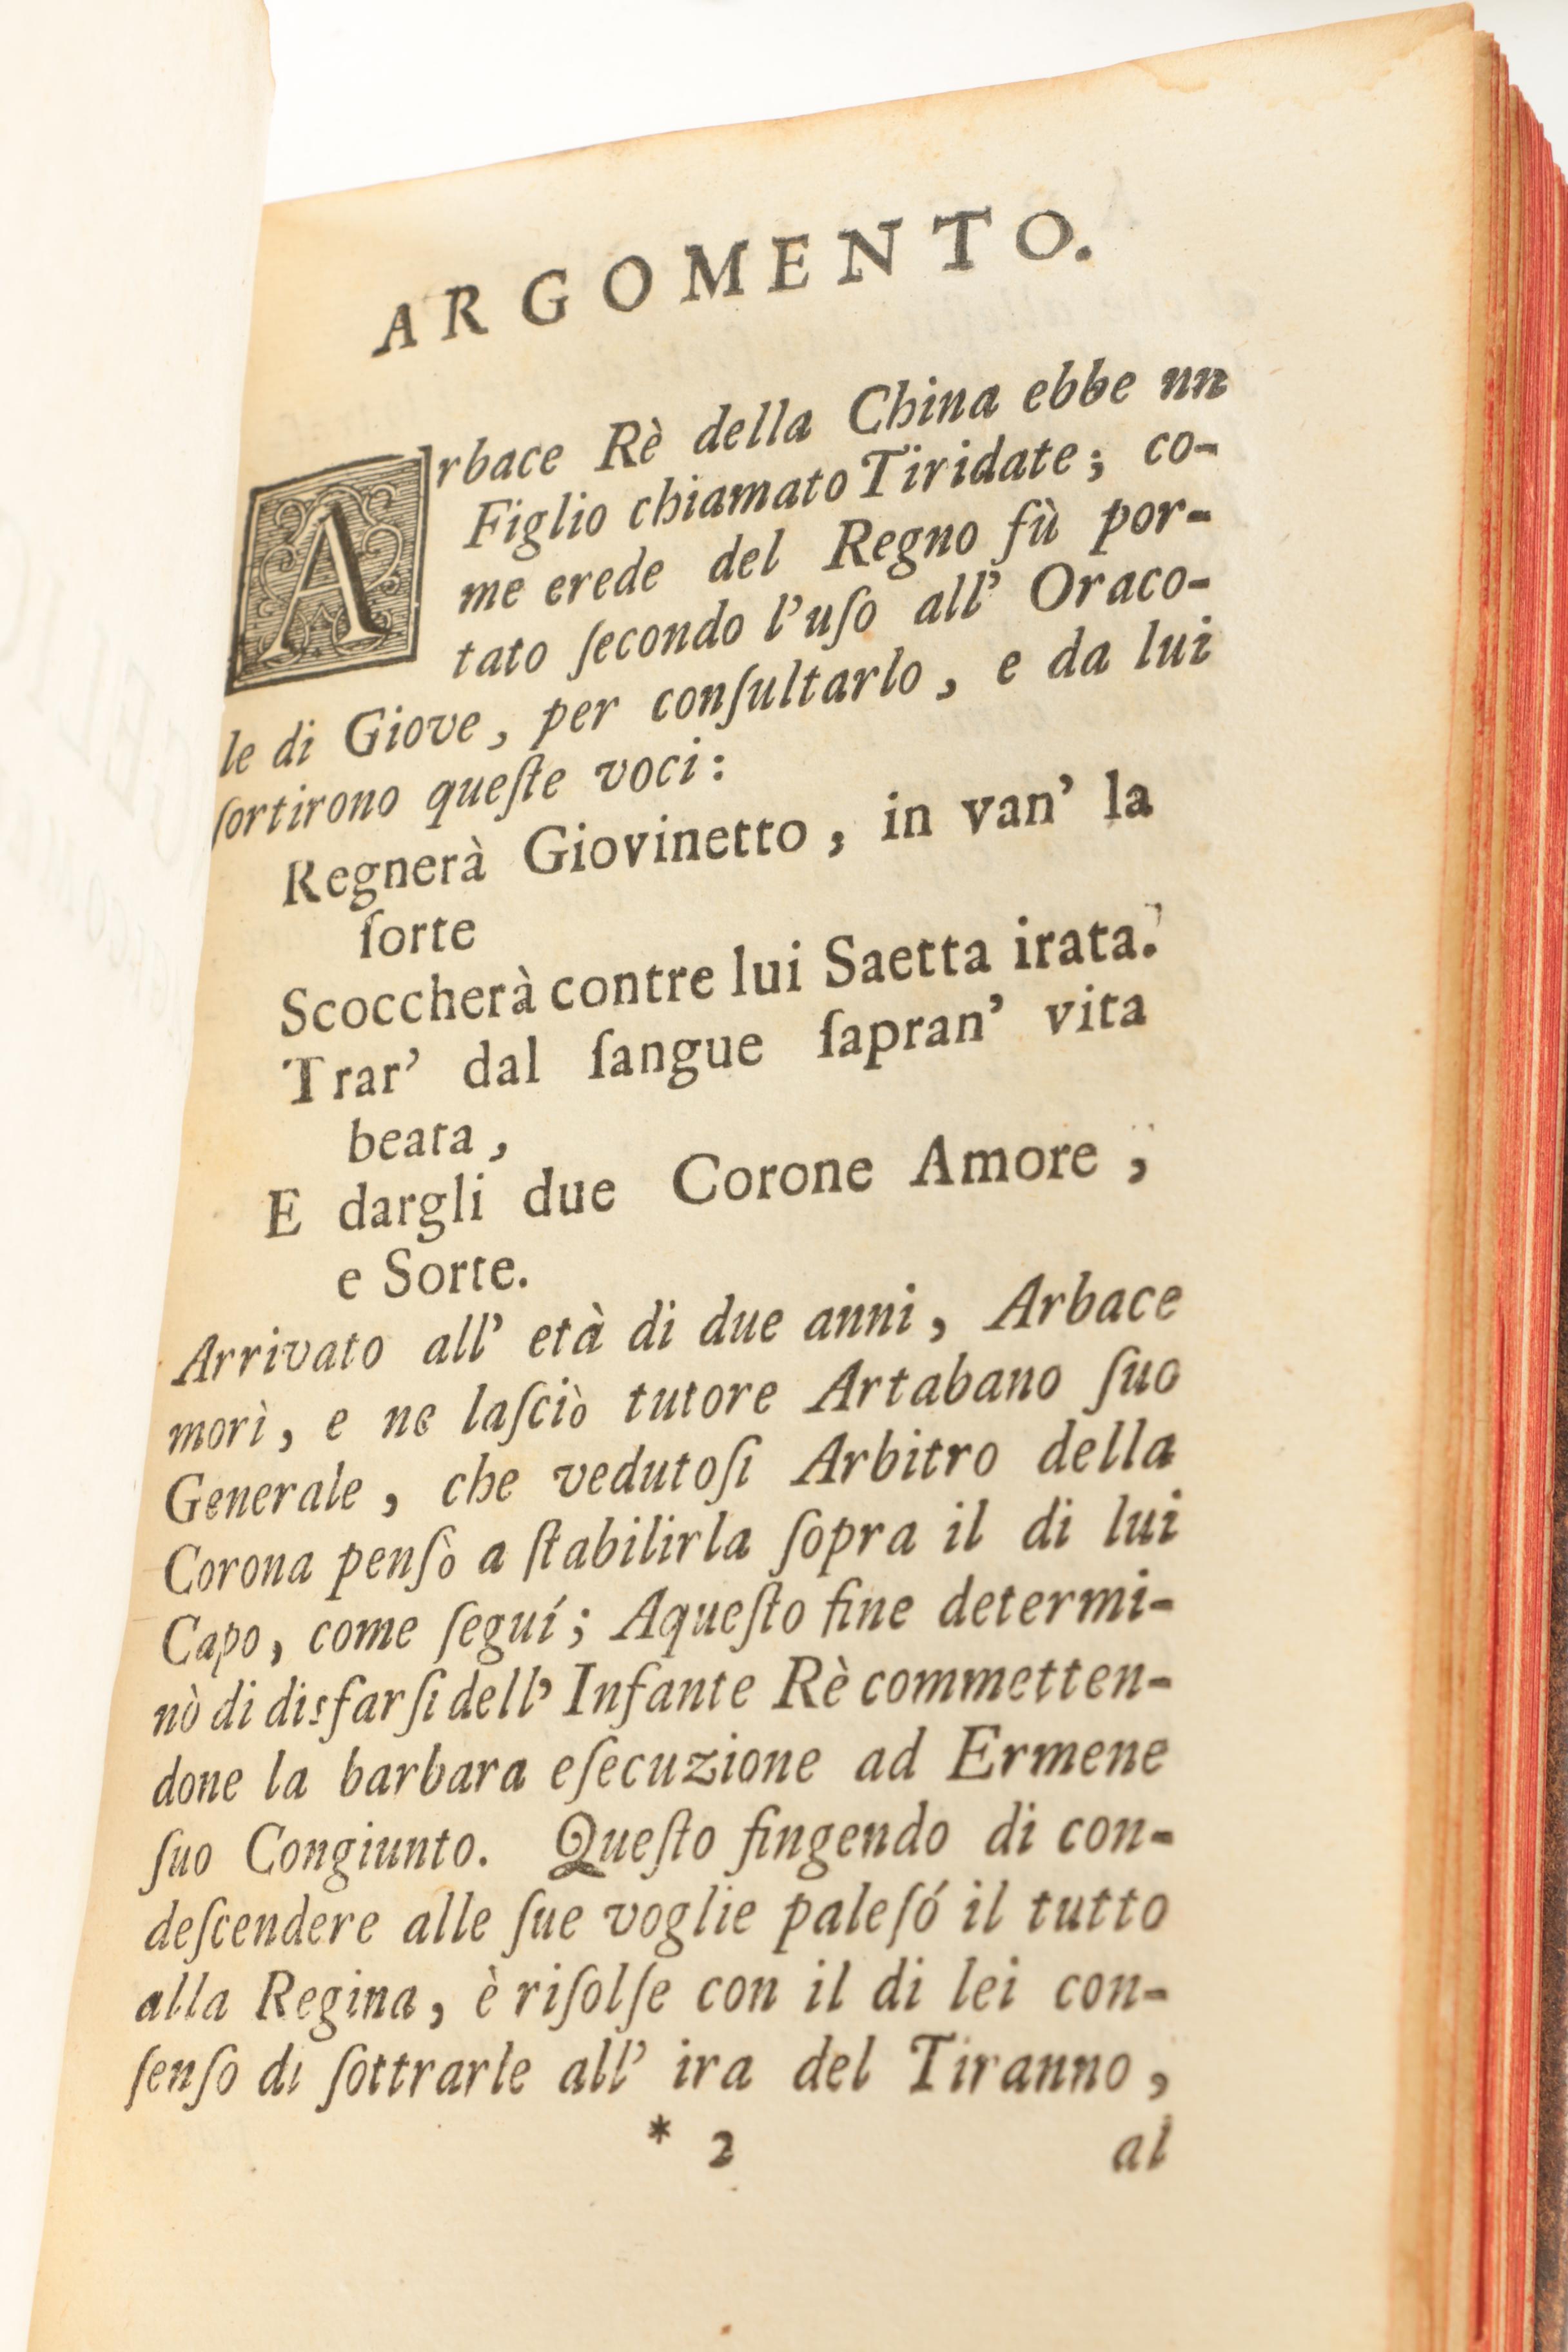 ARGOMENTO.
Arbace Rè della China ebbe un
Figlio chiamato Tiridate; co-
me erede del Regno fù por-
tato ſecondo l'uſo all' Oraco-
le di Giove, per conſultarlo, e da lui
ſortirono queſte voci:
Regnerà Giovinetto, in van' la
ſorte
Scoccherà contre lui Saetta irata.
Trar' dal ſangue ſapran' vita
beata,
E dargli due Corone Amore,
e Sorte.
Arrivato all' età di due anni, Arbace
morì, e ne laſciò tutore Artabano ſuo
Generale, che vedutoſi Arbitro della
Corona penſò a ſtabilirla ſopra il di lui
Capo, come ſeguí; Aqueſto fine determi-
nò di disfarſi dell' Infante Rè commetten-
done la barbara eſecuzione ad Ermene
ſuo Congiunto. Queſto fingendo di con-
deſcendere alle ſue voglie paleſó il tutto
alla Regina, è riſolſe con il di lei con-
ſenſo di ſottrarle all' ira del Tiranno,
* 2 al